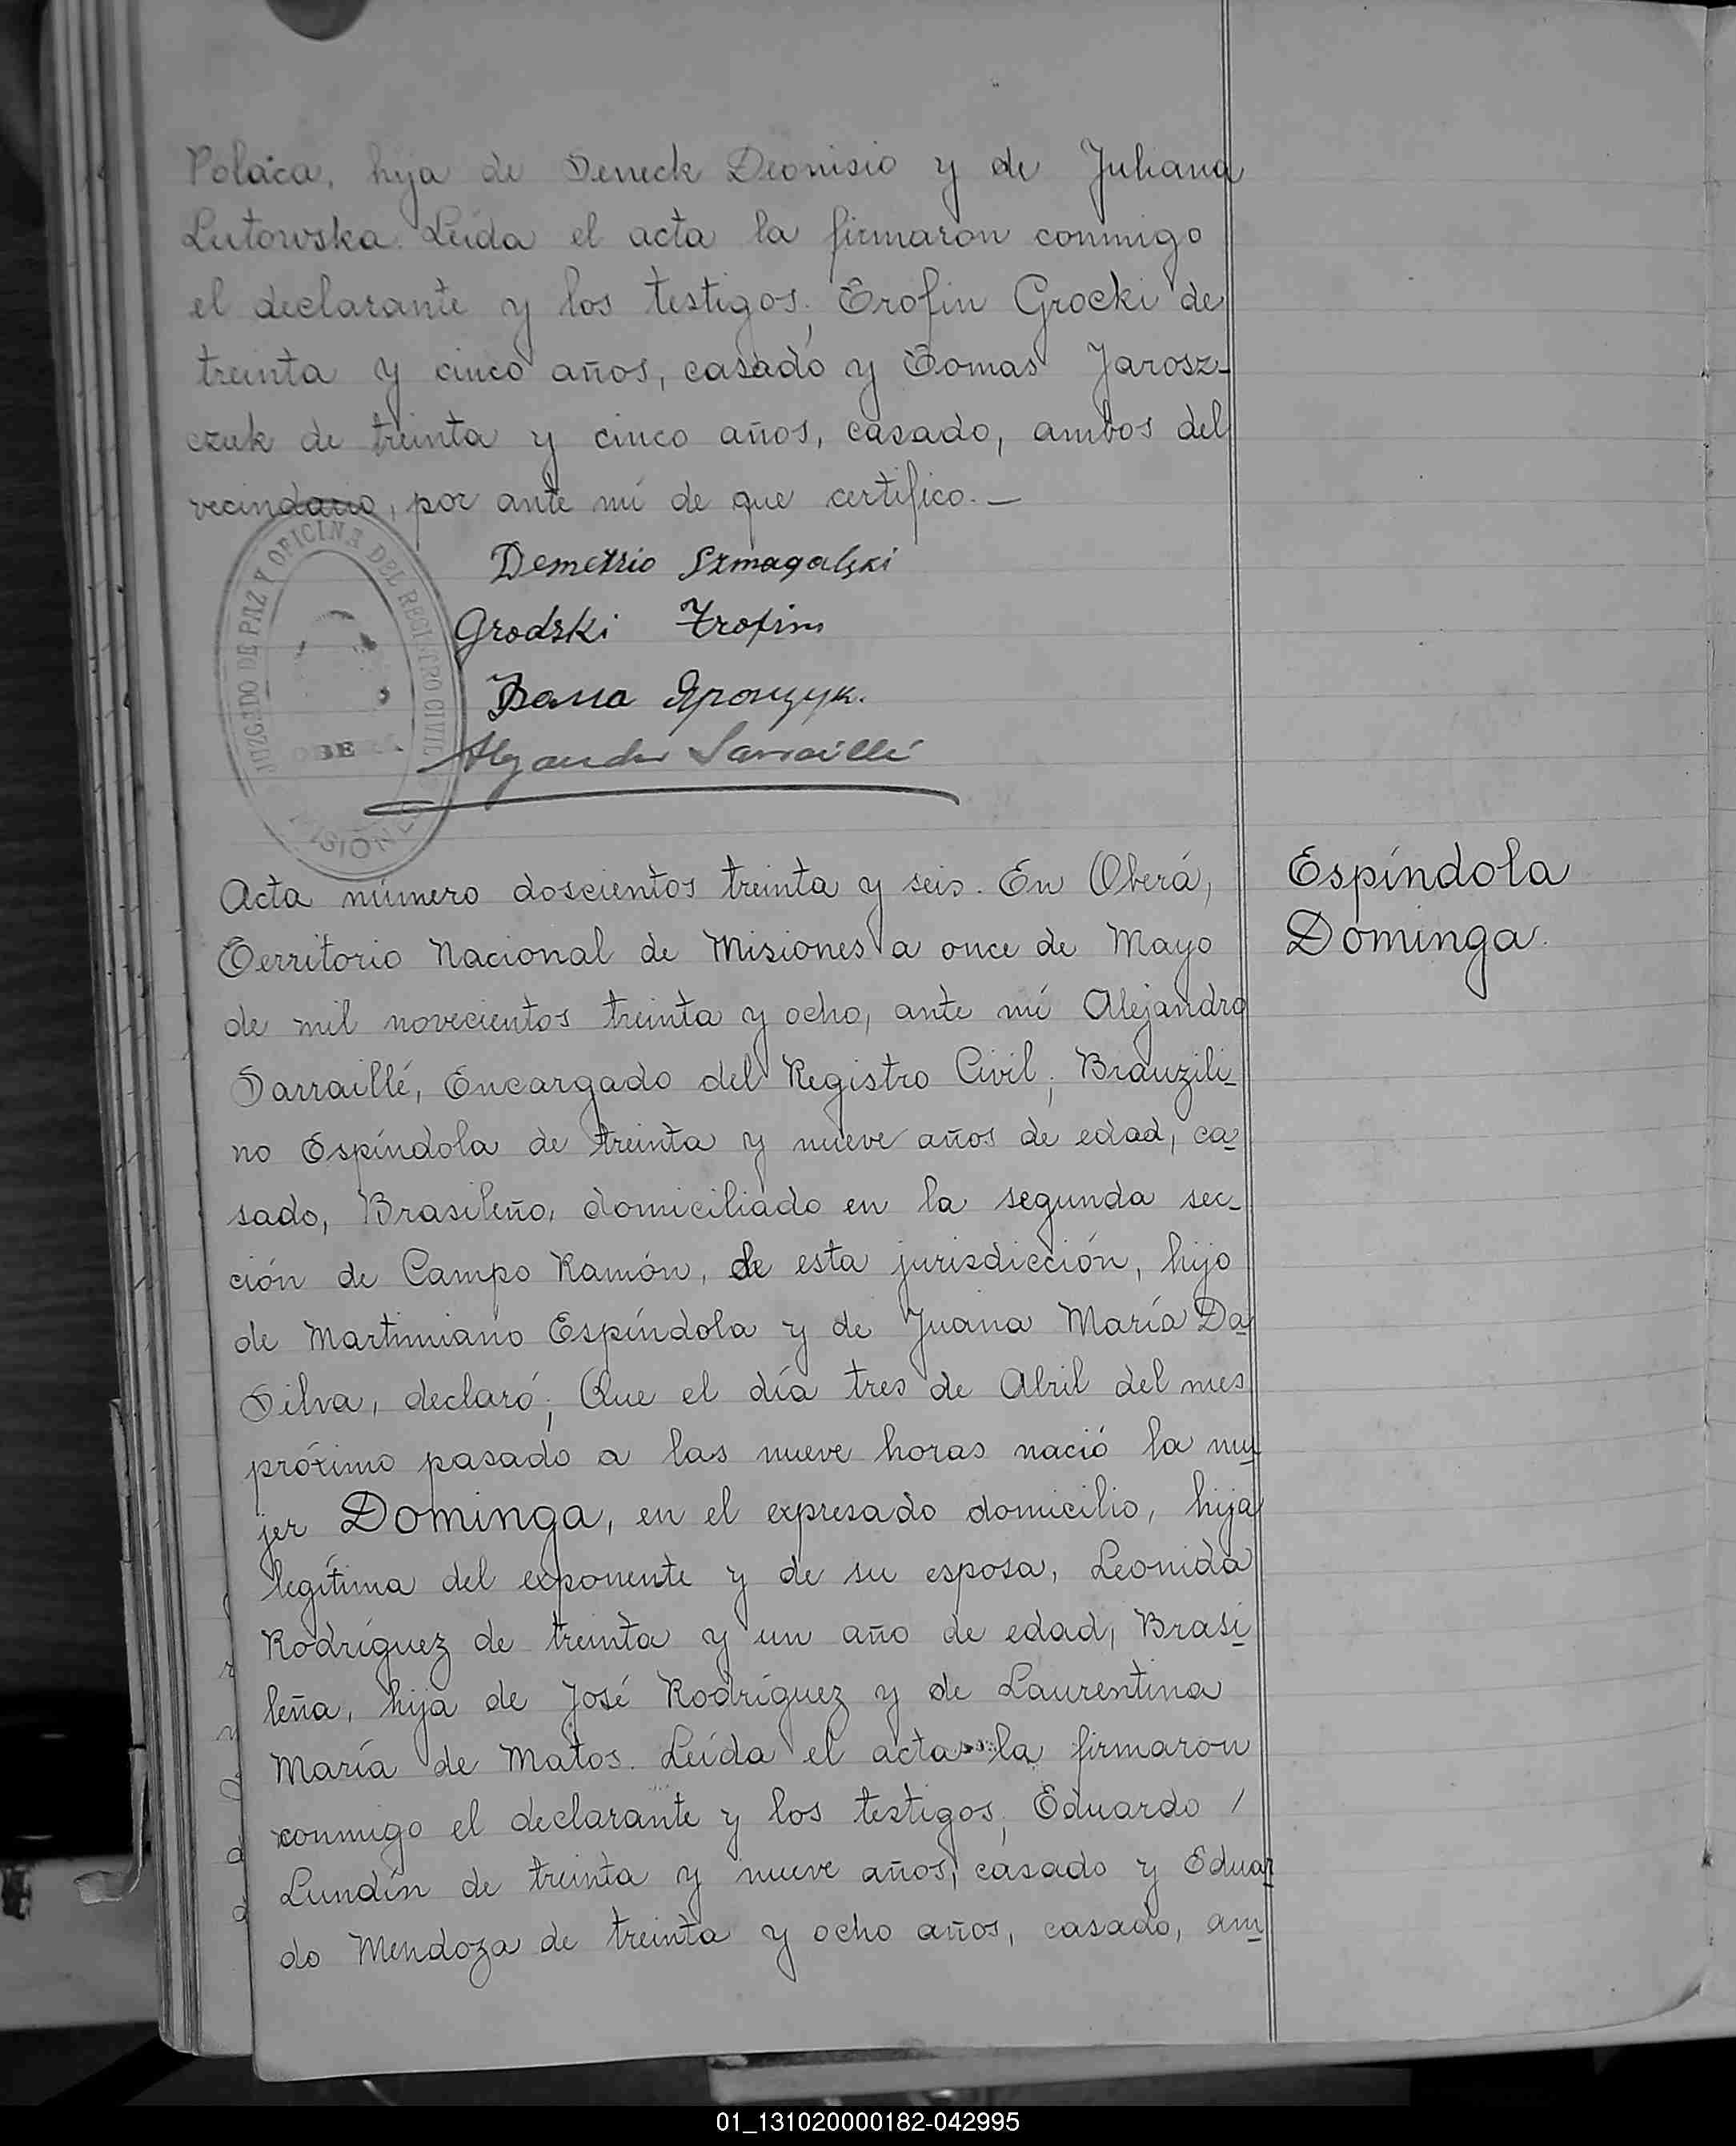 Polaca, hija de Seneck Dionisio y de Juliana
Lutowska. Leída el acta la firmaron conmigo
el declarante y los testigos; Trofin Grocki de
treinta y cinco años, casado y Tomas Jarosz-
czuk de treinta y cinco años, casado, ambos del
vecindario, por ante mí de que certifico.—
Demetrio Szmagalski
Grodzki Trofim
JUZGADO DE PAZ Y OFICINA DEL REGISTRO CIVIL
OBERA
MISIONES
Alejandro Sarraillé
Acta número doscientos treinta y seis. En Oberá,
Territorio Nacional de Misiones a once de Mayo
de mil novecientos treinta y ocho, ante mí Alejandro
Sarraillé, Encargado del Registro Civil; Brauzili-
no Espíndola de treinta y nueve años de edad, ca-
sado, Brasileño, domiciliado en la segunda sec-
ción de Campo Ramón, de esta jurisdicción, hijo
de Martimiano Espíndola y de Juana María Da
Silva, declaró; Que el día tres de Abril del mes
próximo pasado a las nueve horas nació la mu-
jer Dominga, en el expresado domicilio, hija
legítima del exponente y de su esposa, Leonida
Rodríguez de treinta y un año de edad, Brasi-
leña, hija de José Rodríguez y de Laurentina
María de Matos. Leída el acta la firmaron
conmigo el declarante y los testigos; Eduardo /
Lundín de treinta y nueve años, casado y Eduar-
do Mendoza de treinta y ocho años, casado, am-
Espíndola
Dominga.
01_131020000182-042995